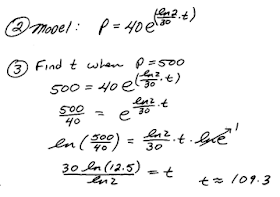 ② Model: P = 40 e^(ln2/30 · t)
③ Find t when P = 500
500 = 40 e^(ln2/30 · t)
500/40 = e^(ln2/30 · t)
ln(500/40) = ln2/30 · t · ln e → 1
30 ln(12.5)/ln2 = t t ≈ 109.3